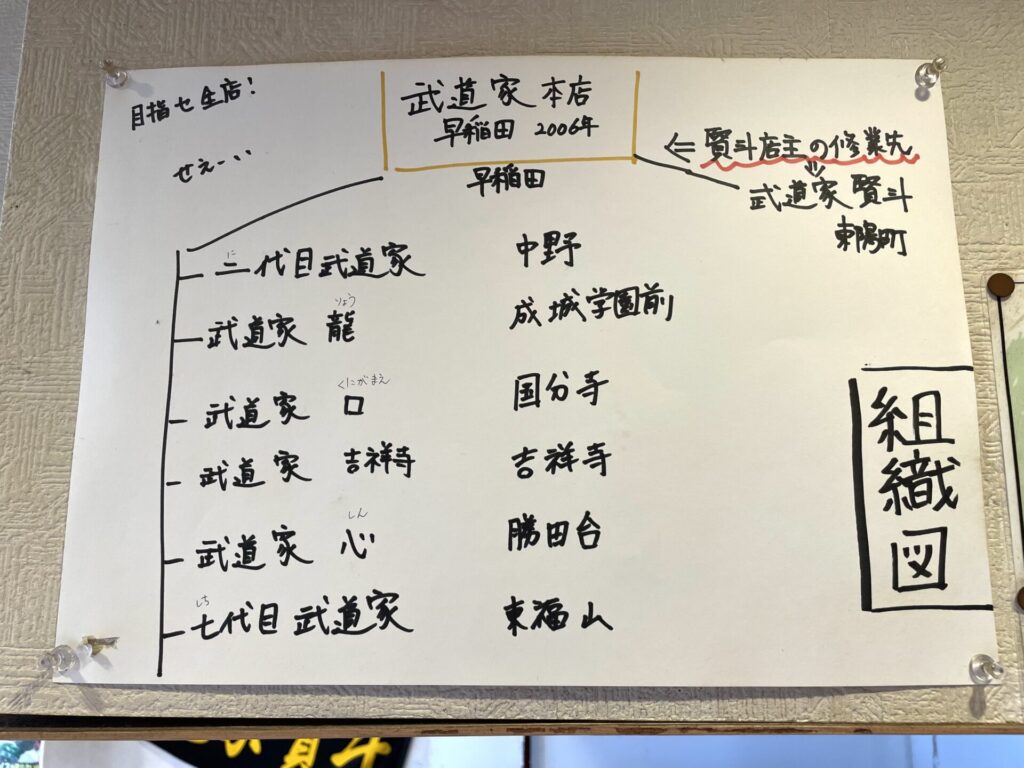 目指せ全店!
せぇーい
武道家 本店
早稲田 2006年
早稲田
⇐ 賢斗店主の修業先
武道家 賢斗
東陽町
に
二代目武道家 中野
りょう
武道家 龍 成城学園前
くにがまえ
武道家 口 国分寺
武道家 吉祥寺 吉祥寺
しん
武道家 心 勝田台
しち
七代目 武道家 東福山
組織図
賢斗